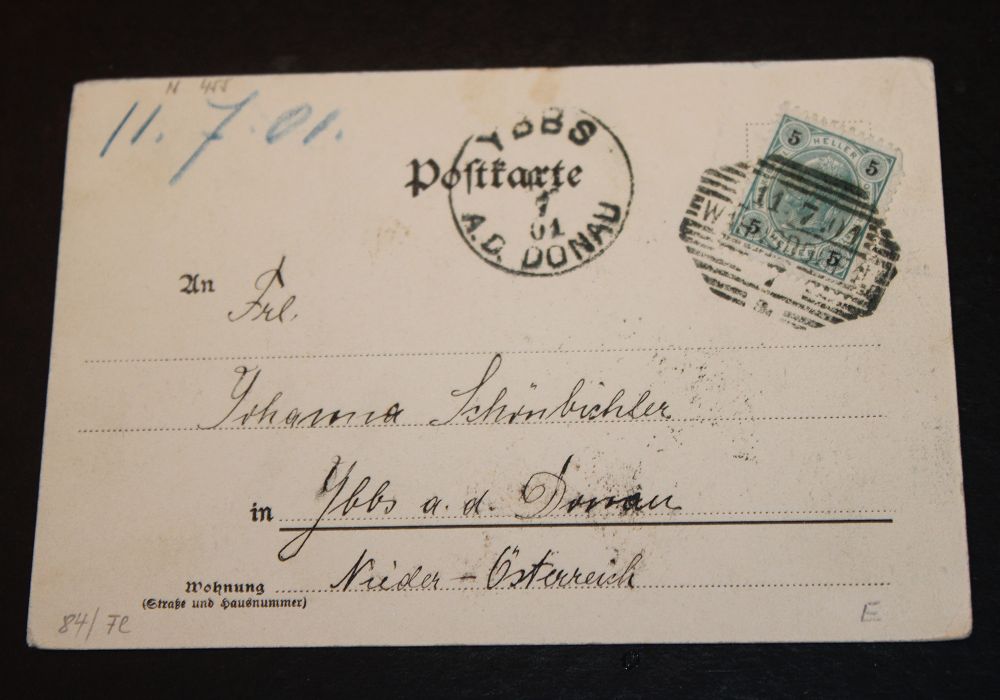 N 455
11. 7. 01.
YBBS
7
01
A.D. DONAU
Postkarte
5 HELLER 5
11.7.01
5 5
7
An
Frl.
Johanna Schönbichler
in Ybbs a. d. Donau
Nieder - Österreich
Wohnung
(Straße und Hausnummer)
84/
E